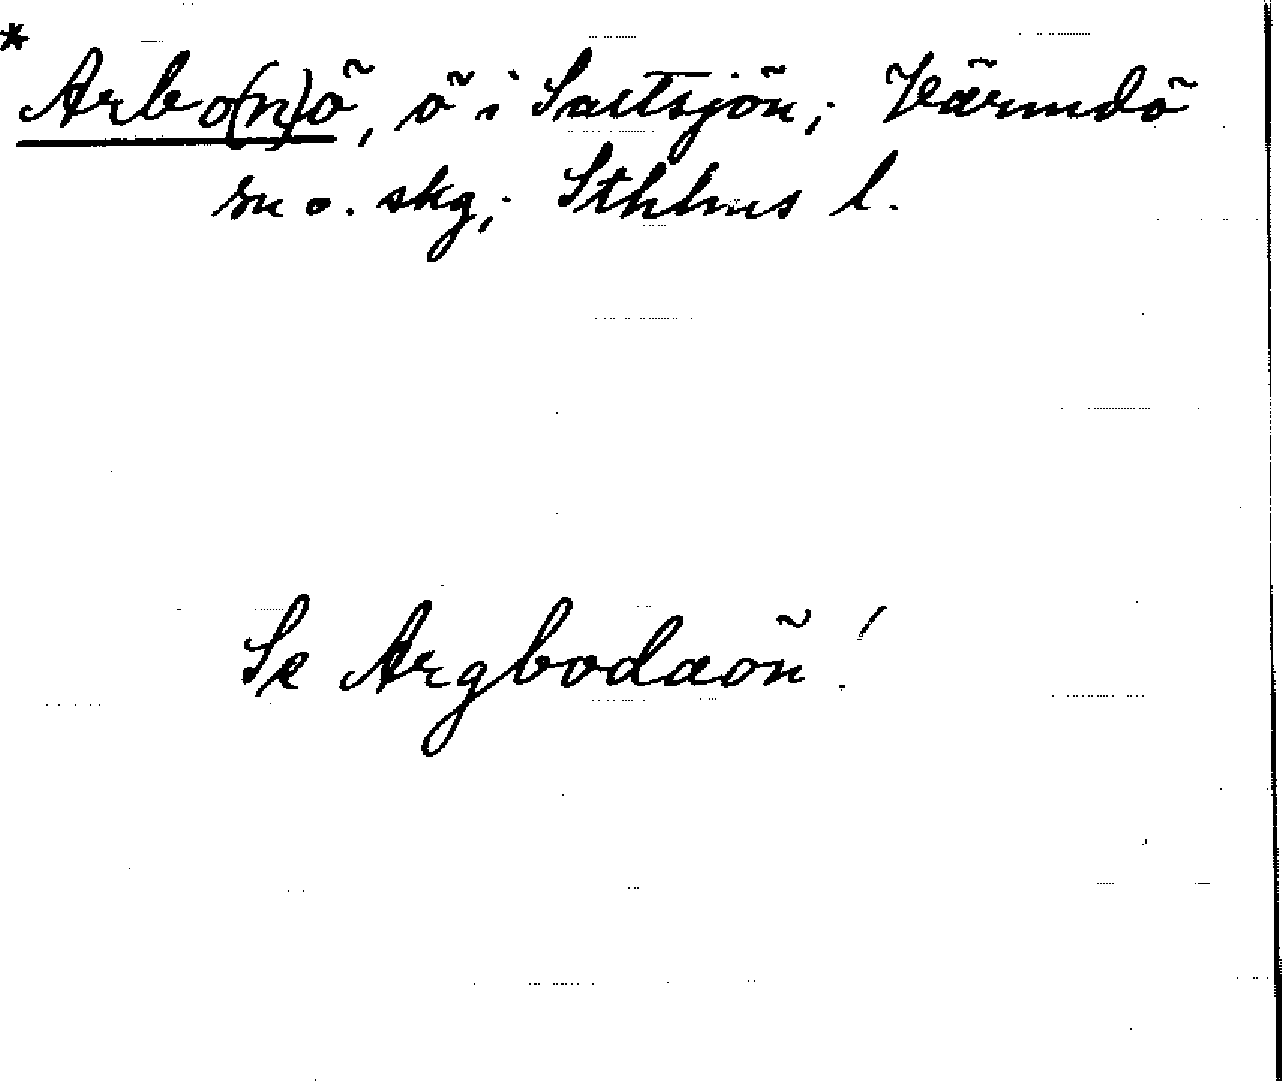 *
Arbo(n)ö, ö i Saltsjön; Värmdö
sn o. skg; Sthlms l.
Se Argbodaön!